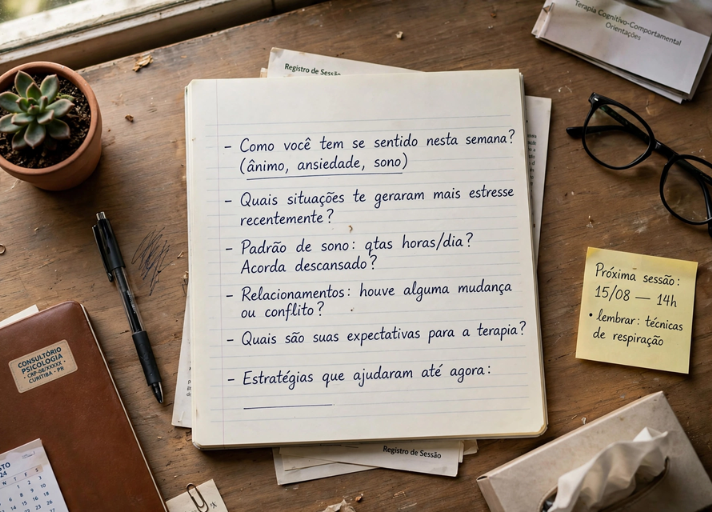 Terapia Cognitivo-Comportamental
Orientações
Registro de Sessão
- Como você tem se sentido nesta semana?
(ânimo, ansiedade, sono)
- Quais situações te geraram mais estresse
recentemente?
- Padrão de sono: qtas horas/dia?
Acorda descansado?
- Relacionamentos: houve alguma mudança
ou conflito?
- Quais são suas expectativas para a terapia?
- Estratégias que ajudaram até agora:
Próxima sessão:
15/08 — 14h
• lembrar: técnicas
de respiração
CONSULTÓRIO
PSICOLOGIA
CURITIBA - PR
Registro de Sessão